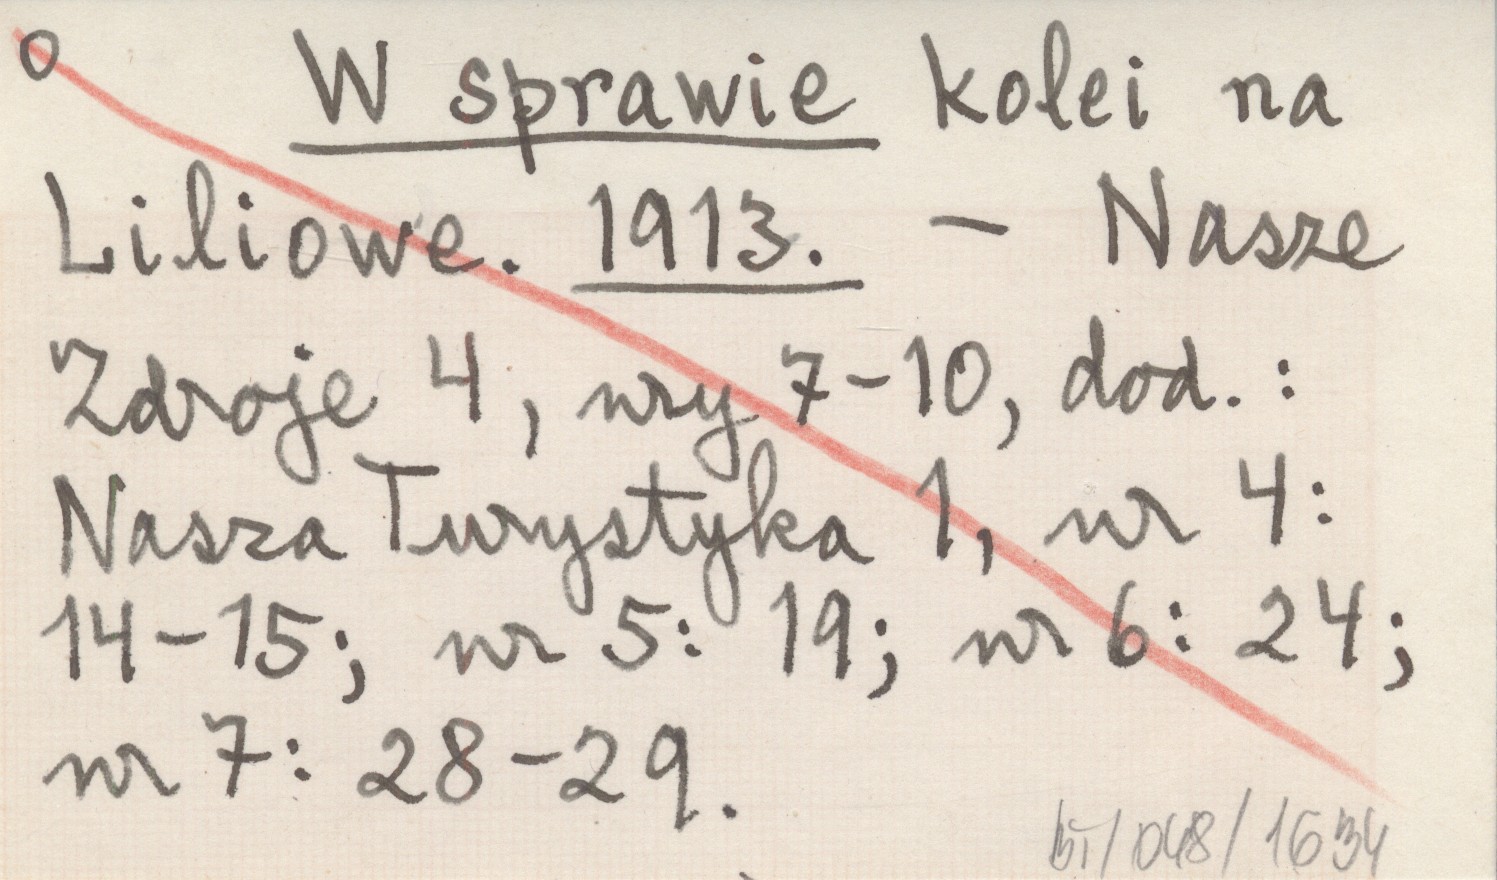 o W sprawie kolei na
Liliowe. 1913. – Nasze
Zdroje 4, nry 7–10, dod. :
Nasza Turystyka 1, nr 4:
14–15; nr 5: 19; nr 6: 24;
nr 7: 28–29.
BT/048/1634